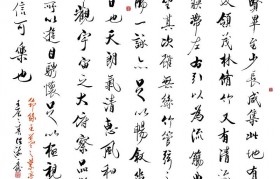 畢至少長咸集此地有
領茂林脩竹又有清
映帶左右引以為流觴
坐其次雖無絲竹管弦
觴一詠亦足以暢叙
日也天朗氣清惠風和
觀宇宙之大俯察品
所以遊目騁懷足以極視
信可樂也